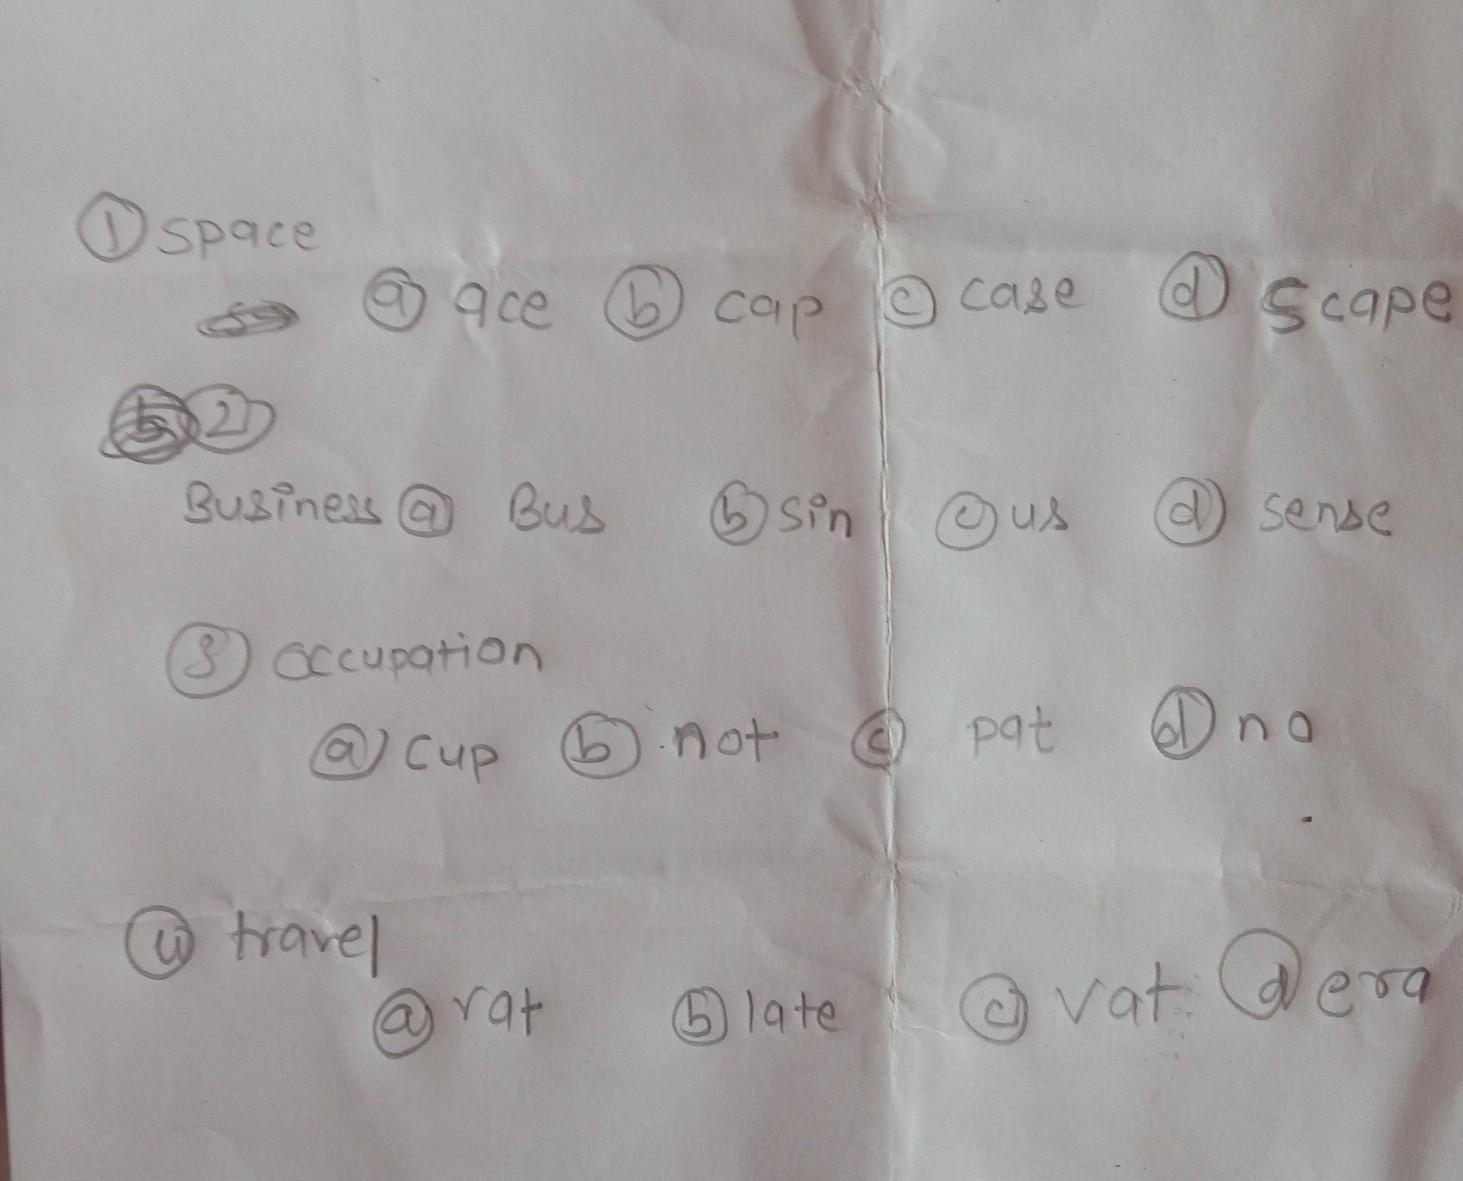 ① space
ⓐ ace ⓑ cap ⓒ case ⓓ scape
②
Business ⓐ Bus ⓑ sin ⓒ us ⓓ sense
③ occupation
ⓐ cup ⓑ not ⓒ pat ⓓ no
④ travel
ⓐ rat ⓑ late ⓒ vat ⓓ era